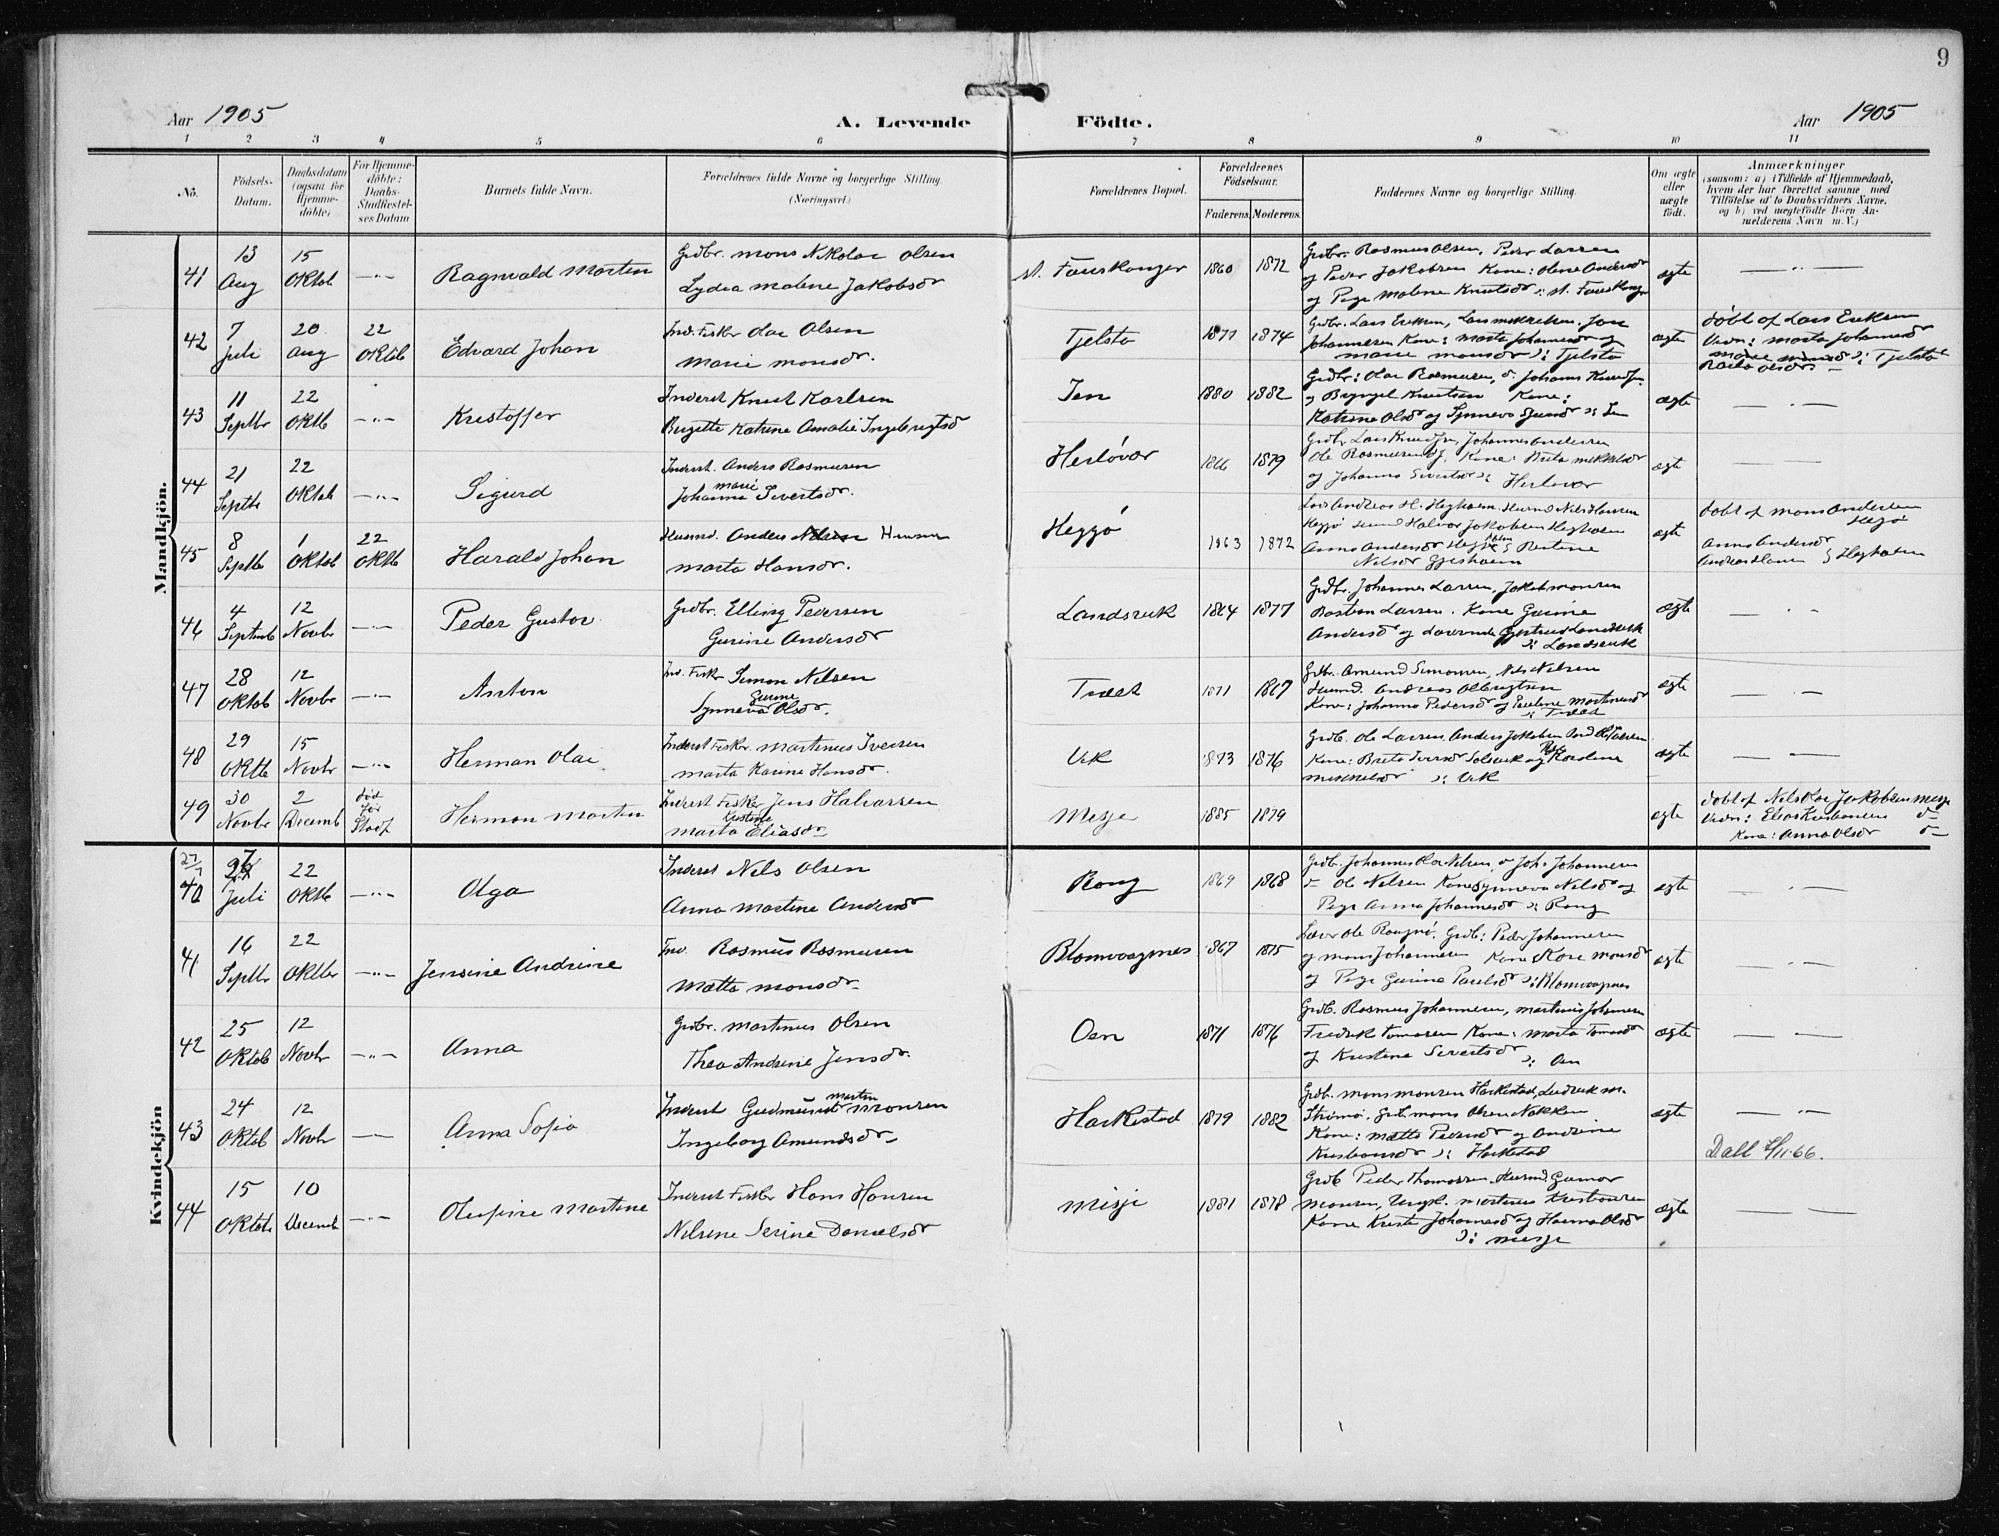 9
Aar 1905
A. Levende Födte.
Aar 1905
1 2 3 4 5 6 7 8 9 10 11
No.
Födsels-Datum.
Daabsdatum (ogsaa for Hjemme-döbte)
For Hjemme-döbte: Daabs-Stadfæstel-ses Datum
Barnets fulde Navn.
Forældrenes fulde Navne og borgerlige Stilling. (Næringsvei.)
Forældrenes Bopæl.
Forældrenes Födselsaar.
Faderens. Moderens.
Faddernes Navne og borgerlige Stilling.
Om ægte eller uægte födt.
Anmærkninger
(saasom: a) i Tilfælde af Hjemmedaab,
hvem der har forrettet samme, med
Tilföielse af to Daabsvidners Navne,
og b) ved uægtefödte Börn An-
melderens Navn m.V.)
Mandkjön.
41
13 Aug
15 Oktob
Ragnvald Martin
Grdbr. Mons Nikolai Olsen
Lydia Malene Jakobsdr
st. Fauskanger
1860 1872
Grdbr. Rasmus Olsen, Peder Larsen
og Peder Jakobsen Kone: Oline Andersdr
og Pige Malene Knutsdr : st. Fauskanger
ægte
42
7 Juli
20 Aug
22 Oktob
Edvard Johan
Ind. Fisker Olai Olsen
Marie Monsdr.
Tjelsto
1871 1874
Grdbr. Lars Eriksen,
Johannesen Kone: Marta Johannesdr og
Marie Monsdr : Tjelsto
ægte
döbt af Lars Eriksen
Vidn: Marta Johannesdr
: Tjelsto
43
11 Septbr
22 Oktb
Kristoffer
Inderst Knut Karlsen
Birgitte Katrine Amalie Ingebrigtsdr
1880 1882
Grdbr: Olai Rasmusen,
Knutsen Kone:
Katrine Olsdr og Synneva
ægte
44
21 Septb
22 Oktob
Sigurd
Inderst. Anders Rasmusen
Johanna Marie Sivertsdr.
Herlövær
1866 1879
Grdbr Lars Knudsen, Johannes Andersen
Ole Rasmusen Kone: Brita Mikkelsdr
og Johanna Sivertsdr : Herlövær
ægte
45
8 Septb
1 Oktob
22 Oktb
Harald Johan
Husmd. Anders Nilsen
Marta Hansdr.
Hegjö
1863 1872
Nils Hansen
Hegjö Husmd Halvor Jakobsen Hegholm
Anna Andersdr
Nilsdr
ægte
döbt af Mons Andersen
Hegjö
Anna Andersdr
Hegholm
46
4 Septemb
12 Novbr
Peder Gustav
Grdbr. Elling Pedersen
Gurine Andersdr
Landsvik
1864 1877
Grdbr. Johannes Larsen, Jakob Monsen
Bastian Larsen. Kone Gurine
Andersdr og
: Landsvik
ægte
47
28 Oktob
12 Novbr
Anton
Ind. Fisker Simon Nilsen
Synneva Gurine Olsdr.
Træet
1871 1867
Grdbr. Amund Simonsen, Nils Nilsen
Husmd. Andreas Olbrigtsen
Kone: Johanna Pedersdr og Pauline Martinusdr
: Træet
ægte
48
29 Oktb
15 Novbr
Herman Olai
Inderst Fisker. Martinus Iversen
Marta Karine Hansdr.
Vik
1873 1876
Grdb. Ole Larsen Anders Jakobsen
Kone: Brita Iversdr Solsvik og Pige Karoline
Mikkelsdr : Vik
ægte
49
30 Novbr
2 Decemb
död för Stadf
Herman Martin
Inderst Fisker Jens Halvorsen
Marta Kristine Eliasdr
Misje
1885 1879
ægte
döbt af Nils Olai Jakobsen Misje
Vidn: Elias Kristiansen
Kone: Anna Olsdr
Kvindekjön
40
27/7
27 Juli
22 Oktb
Olga
Inderst Nils Olsen
Anna Martine Andersdr
Rong
1869 1868
Grdb. Johannes Olai Nilsen, Joh. Johannesen
Ole Nilsen Kone Synneva Nilsdr og
Pige Anna Johannesdr : Rong
ægte
41
16 Septbr
22 Oktbr
Jensine Andrine
Ind. Rasmus Rasmusen
Matta Monsdr
Blomvaagnes
1867 1875
Lærer Ole Rongnö. Grdb: Peder Johannesen
og Mons Johannesen Kone Kari Monsdr
og Pige Gurina Paulsdr : Blomvaagnes
ægte
42
25 Oktob
12 Novbr
Anna
Grdbr. Martinus Olsen
Thea Andrine Jensdr.
Oen
1871 1876
Grdb. Rasmus Johannesen, Martinus Johannesen
Fredrik Tomasen Kone: Marta Tomasdr
og Kristine Sivertsdr : Oen
ægte
43
24 Oktob
12 Novbr
Anna Sofia
Inderst Gudmund Martin Monsen
Ingeborg Amundsdr
Harkestad
1879 1882
Grdb. Mons Monsen Harkestad, Ludvik M.
Strömö. Grdb. Mons Olsen Nakken
Kone: Matta Pedersdr og Andrine
Kristiansdr : Harkestad
ægte
Dall 4/11-66.
44
15 Oktob
10 Decemb
Olufine Martine
Inderst Fisker Hans Hansen
Nilsine Serine Danielsdr
Misje
1881 1878
Grdb Peder Thomassen, Husmd Gunnar
Monsen, Ungk. Martinus Kristiansen
Kone Kristi Johannesdr og Hanna Olsdr
: Misje
ægte